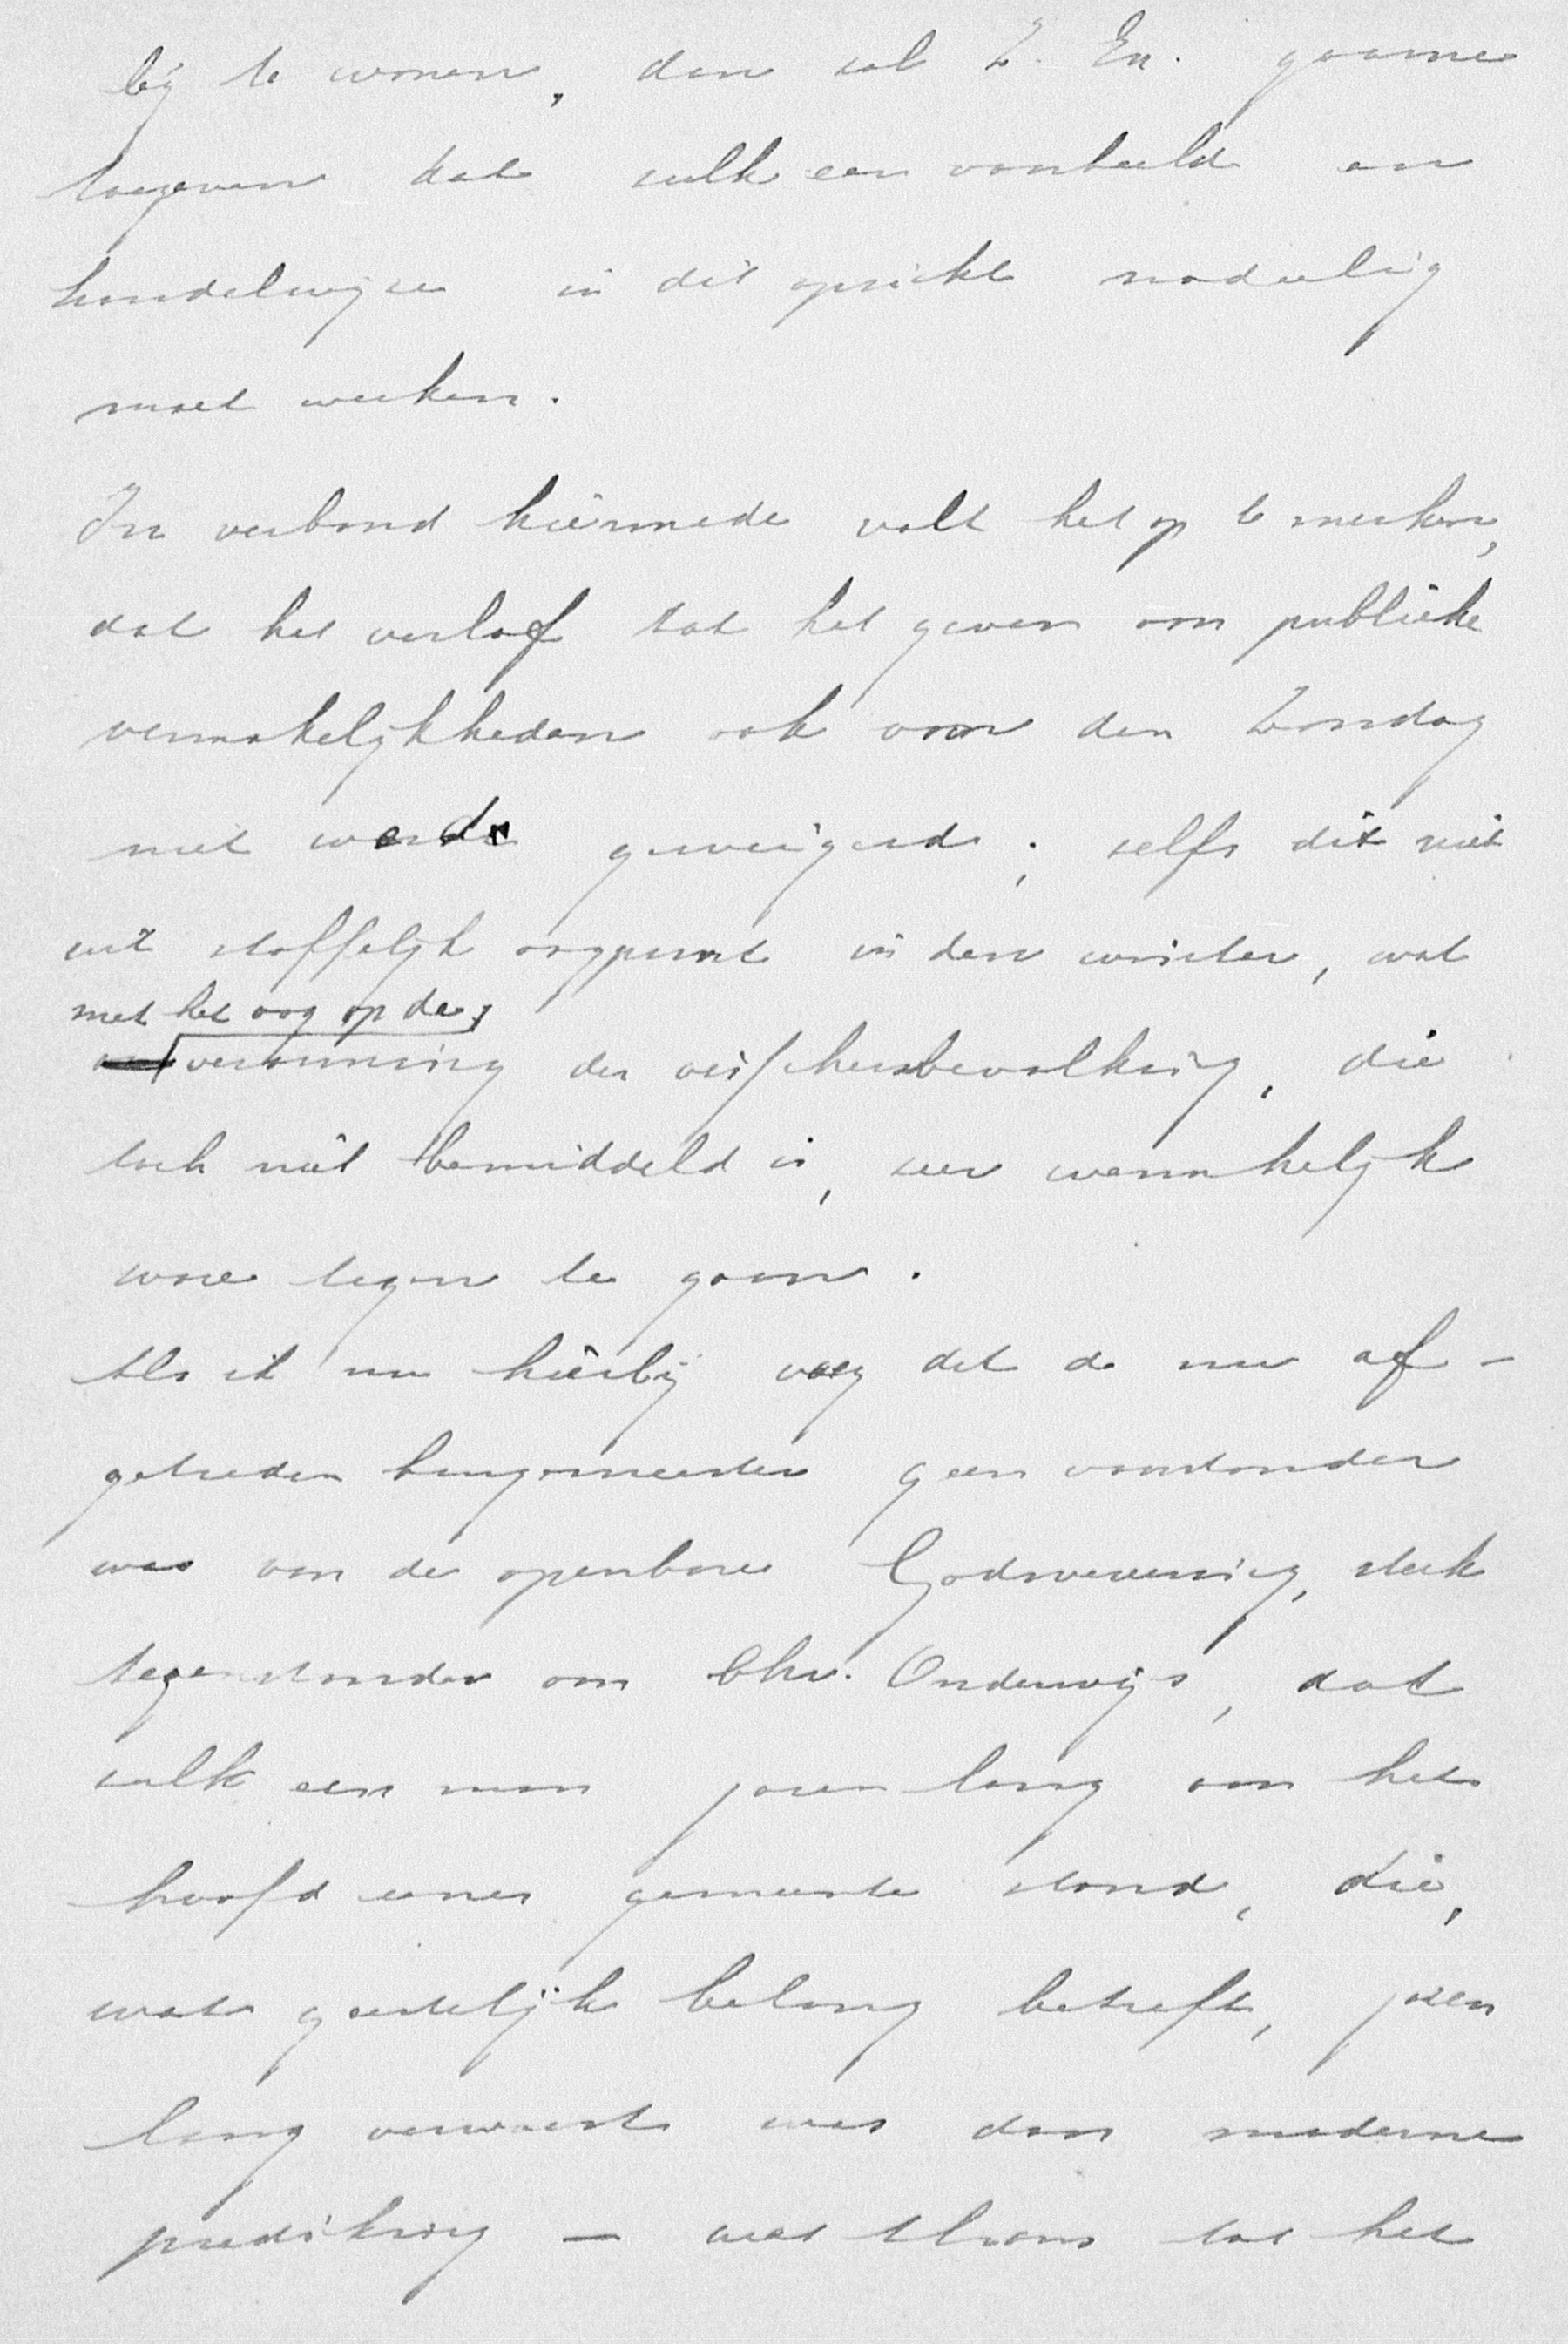 bij te wonen, dan zal Z. En. gaarne
toegeven dat zulk een voorbeeld en
handelwijze in dit opzicht nadeelig
moet werken.
In verband hiermede valt het op te merken,
dat het verlof tot het geven van publieke
vermakelijkheden ook voor den Zondag
niet werd geweigerd; zelfs dit niet
uit stoffelijk oogpunt in den winter, wat
met het oog op de
verarming der visschersbevolking, die
toch niet bemiddeld is, zeer wenschelijk
ware tegen te gaan.
Als ik nu hierbij voeg dat de nu af-
getreden burgemeester geen voorstander
was van de openbare Godsvereering, sterk
tegenstander van Chr. Onderwijs, dat
zulk een man jaren lang aan het
hoofd eener gemeente stond, die,
wat geestelijk belang betreft, jaren
lang verwoest was door moderne
prediking — wat thans tot het